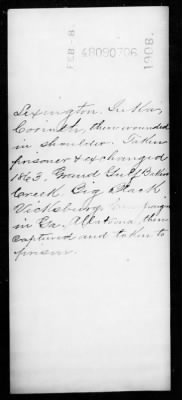 FEB -8
48090706
1908.
Lexington, Iuka,
Corinth, then wounded
in shoulder. Taken
prisoner & exchanged
1863, Grand Gulf, Bakers
Creek, Big Black
Vicksburg, Campaign
in Ga. Allatoona, then
captured and taken to
prison.